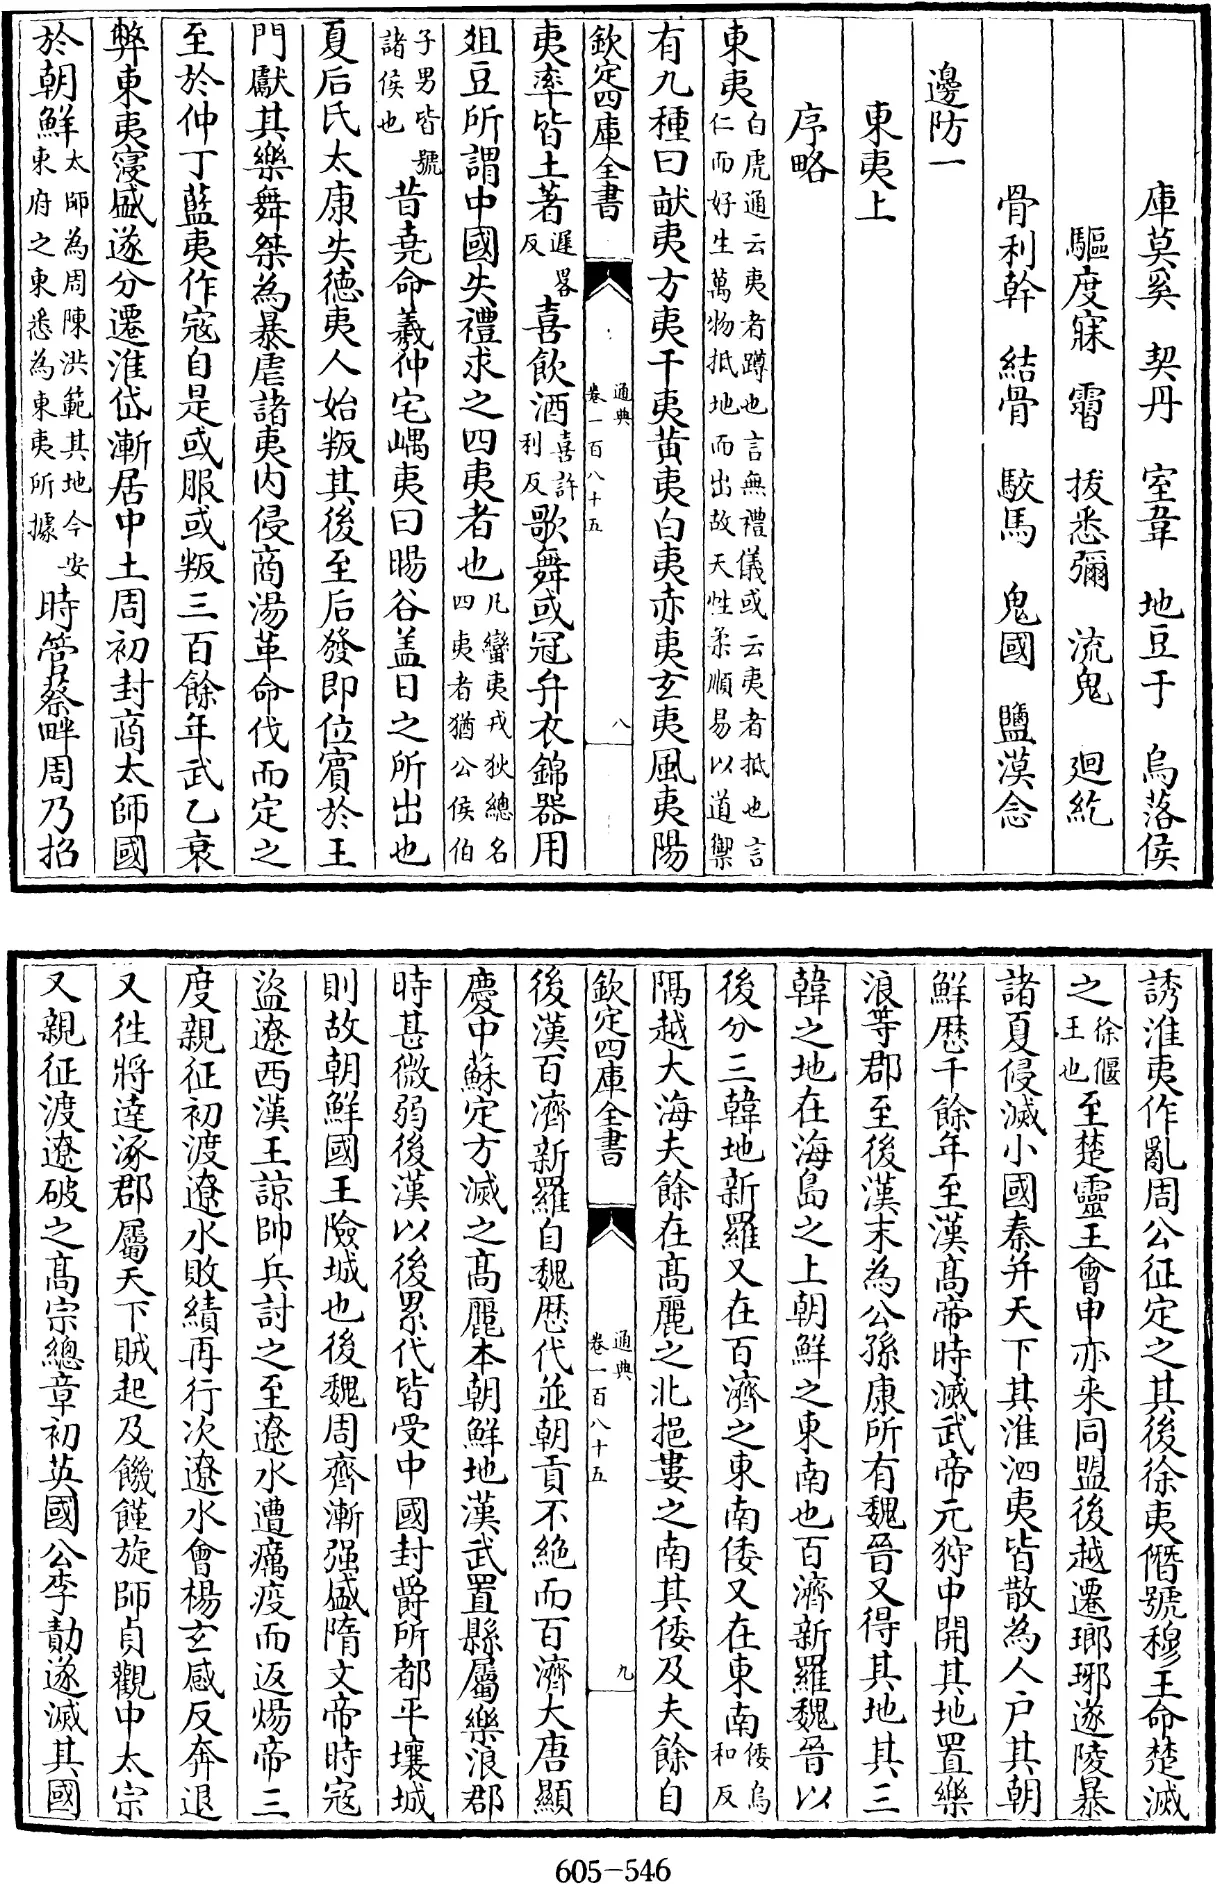 庫莫奚　契丹　室韋　地豆于　烏落侯
驅度寐　霫　拔悉彌　流鬼　廻紇
骨利幹　結骨　駮馬　鬼國　鹽漠念
邊防一
東夷上
序略
東夷白虎通云夷者蹲也言無禮儀或云夷者抵也言仁而好生萬物抵地而出故天性柔順易以道禦
有九種曰畎夷方夷干夷黄夷白夷赤夷玄夷風夷陽
欽定四庫全書
通典
卷一百八十五
八
夷率皆土著遲畧反喜飲酒喜許利反歌舞或冠弁衣錦器用
俎豆所謂中國失禮求之四夷者也凡蠻夷戎狄總名四夷者猶公侯伯
子男皆號諸侯也昔堯命羲仲宅嵎夷曰暘谷盖日之所出也
夏后氏太康失徳夷人始叛其後至后發即位賓於王
門獻其樂舞桀為暴虐諸夷内侵商湯革命伐而定之
至於仲丁藍夷作寇自是或服或叛三百餘年武乙衰
弊東夷寖盛遂分遷淮岱漸居中土周初封商太師國
於朝鮮太師為周陳洪範其地今安東府之東悉為東夷所據時管蔡畔周乃招
誘淮夷作亂周公征定之其後徐夷僭號穆王命楚滅
之徐偃王也至楚靈王會申亦来同盟後越遷瑯琊遂陵暴
諸夏侵滅小國秦并天下其淮泗夷皆散為人户其朝
鮮歴千餘年至漢髙帝時滅武帝元狩中開其地置樂
浪等郡至後漢末為公孫康所有魏晉又得其地其三
韓之地在海島之上朝鮮之東南也百濟新羅魏晉以
後分三韓地新羅又在百濟之東南倭又在東南倭烏和反
隔越大海夫餘在髙麗之北挹婁之南其倭及夫餘自
欽定四庫全書
通典
卷一百八十五
九
後漢百濟新羅自魏歴代並朝貢不絶而百濟大唐顯
慶中蘇定方滅之髙麗本朝鮮地漢武置縣屬樂浪郡
時甚微弱後漢以後累代皆受中國封爵所都平壤城
則故朝鮮國王險城也後魏周齊漸强盛隋文帝時寇
盜遼西漢王諒帥兵討之至遼水遭癘疫而返煬帝三
度親征初渡遼水敗績再行次遼水會楊玄感反奔退
又徃將逹涿郡屬天下賊起及饑饉旋師貞觀中太宗
又親征渡遼破之髙宗總章初英國公李勣遂滅其國
605-546